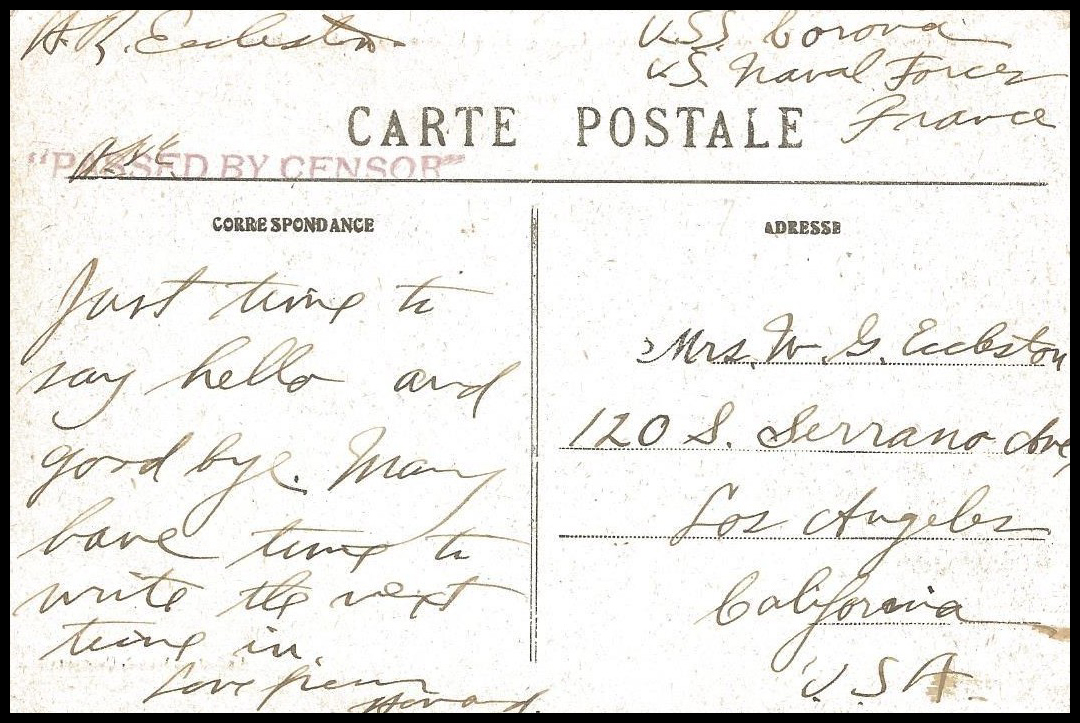 H.R. Eccleston
USS Corona
U.S. Naval Forces
France
CARTE POSTALE
"PASSED BY CENSOR"
CORRESPONDANCE
Just time to
say hello and
good bye. May
have time to
write the next
time in.
Love from
Howard
ADRESSE
Mrs. W. G. Eccleston
120 S. Serrano Ave,
Los Angeles
California
U.S.A.